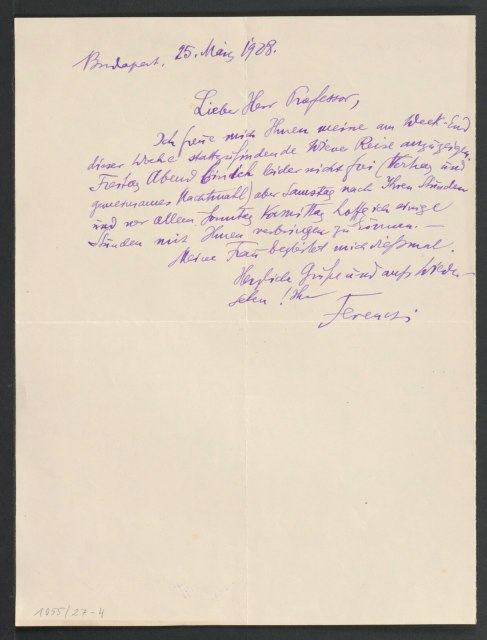 Budapest. 25. März 1928.
Lieber Herr Professor,
Ich freue mich Ihnen meine am Week-End
dieser Woche stattzufindende Wiene Reise anzuzeigen.
Freitag Abend bin ich leider nicht frei (Vortrag und
gemeinsames Nachtmahl) aber Samstag nach Ihren Stunden
und vor allem Sonntag Vormittag hoffe ich einige
Stunden mit Ihnen verbringen zu können. —
Meine Frau begleitet mich diesmal.
Herzlich Grüße und aufs Wieder-
sehen! Ihr
Ferenczi
1055/27-4